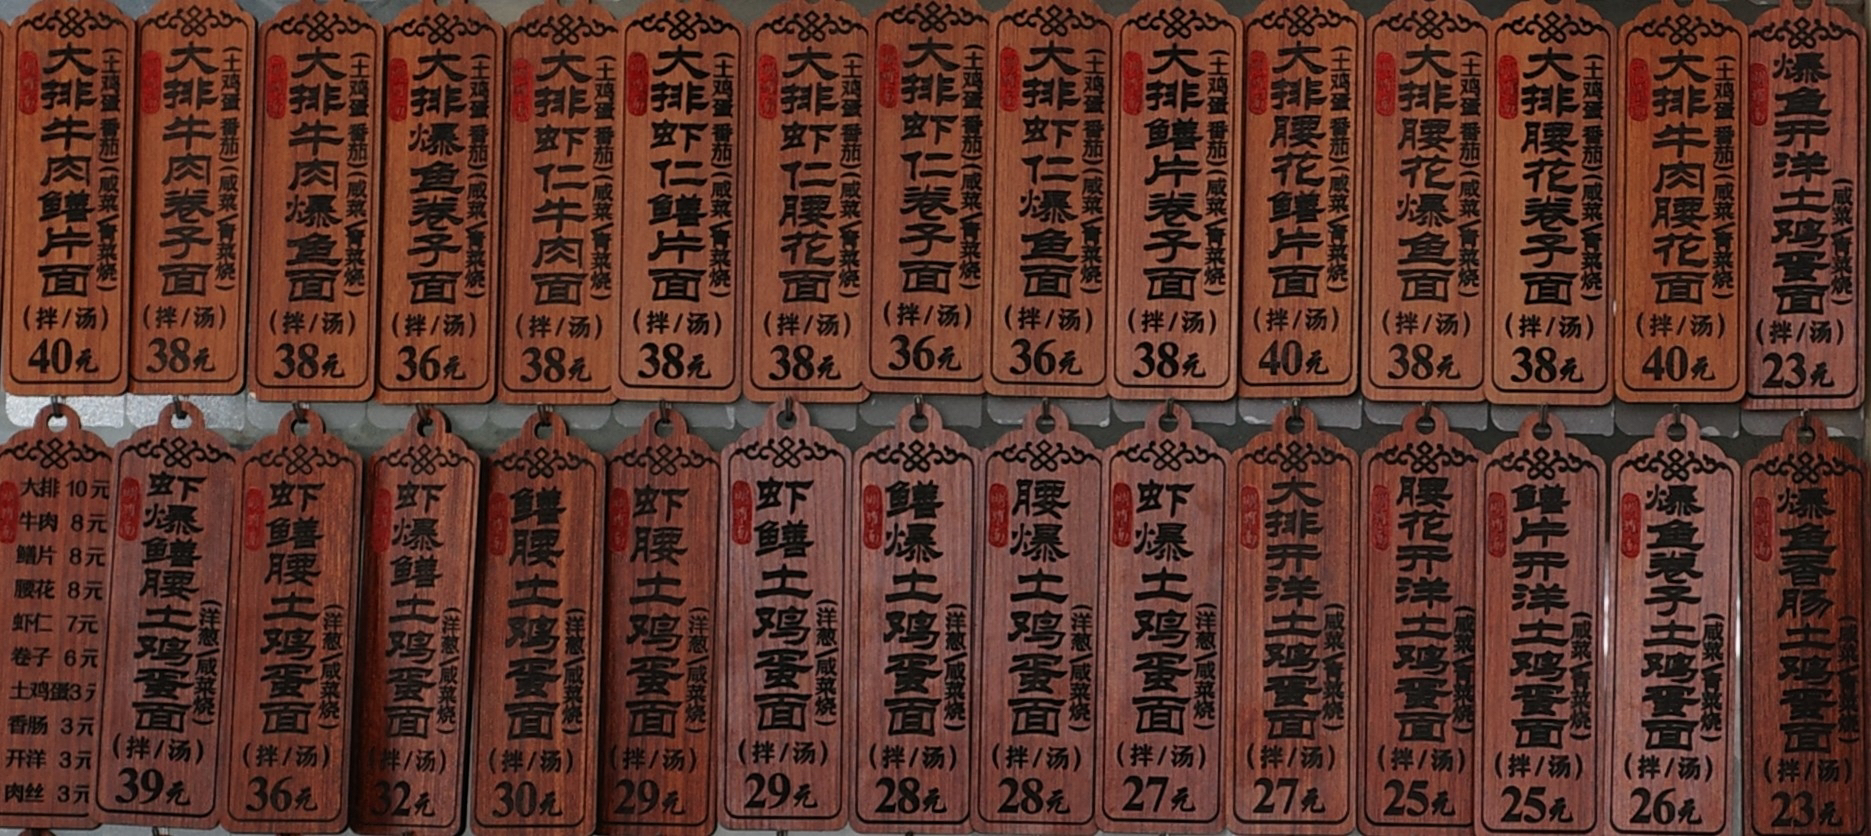 大排牛肉鳝片面
(土鸡蛋 番茄)(咸菜/青菜烧)
(拌/汤)
40元
大排牛肉卷子面
(土鸡蛋 番茄)(咸菜/青菜烧)
(拌/汤)
38元
大排牛肉爆鱼面
(土鸡蛋 番茄)(咸菜/青菜烧)
(拌/汤)
38元
大排爆鱼卷子面
(土鸡蛋 番茄)(咸菜/青菜烧)
(拌/汤)
36元
大排虾仁牛肉面
(土鸡蛋 番茄)(咸菜/青菜烧)
(拌/汤)
38元
大排虾仁鳝片面
(土鸡蛋 番茄)(咸菜/青菜烧)
(拌/汤)
38元
大排虾仁腰花面
(土鸡蛋 番茄)(咸菜/青菜烧)
(拌/汤)
38元
大排虾仁卷子面
(土鸡蛋 番茄)(咸菜/青菜烧)
(拌/汤)
36元
大排虾仁爆鱼面
(土鸡蛋 番茄)(咸菜/青菜烧)
(拌/汤)
36元
大排鳝片卷子面
(土鸡蛋 番茄)(咸菜/青菜烧)
(拌/汤)
38元
大排腰花鳝片面
(土鸡蛋 番茄)(咸菜/青菜烧)
(拌/汤)
40元
大排腰花爆鱼面
(土鸡蛋 番茄)(咸菜/青菜烧)
(拌/汤)
38元
大排腰花卷子面
(土鸡蛋 番茄)(咸菜/青菜烧)
(拌/汤)
38元
大排牛肉腰花面
(土鸡蛋 番茄)(咸菜/青菜烧)
(拌/汤)
40元
爆鱼开洋土鸡蛋面
(咸菜/青菜烧)
(拌/汤)
23元
大排 10元
牛肉 8元
鳝片 8元
腰花 8元
虾仁 7元
卷子 6元
土鸡蛋3元
香肠 3元
开洋 3元
肉丝 3元
虾爆鳝腰土鸡蛋面
(洋葱/咸菜烧)
(拌/汤)
39元
虾鳝腰土鸡蛋面
(洋葱/咸菜烧)
(拌/汤)
36元
虾爆鳝土鸡蛋面
(洋葱/咸菜烧)
(拌/汤)
32元
鳝腰土鸡蛋面
(洋葱/咸菜烧)
(拌/汤)
30元
虾腰土鸡蛋面
(洋葱/咸菜烧)
(拌/汤)
29元
虾鳝土鸡蛋面
(洋葱/咸菜烧)
(拌/汤)
29元
鳝爆土鸡蛋面
(洋葱/咸菜烧)
(拌/汤)
28元
腰爆土鸡蛋面
(洋葱/咸菜烧)
(拌/汤)
28元
虾爆土鸡蛋面
(洋葱/咸菜烧)
(拌/汤)
27元
大排开洋土鸡蛋面
(咸菜/青菜烧)
(拌/汤)
27元
腰花开洋土鸡蛋面
(咸菜/青菜烧)
(拌/汤)
25元
鳝片开洋土鸡蛋面
(咸菜/青菜烧)
(拌/汤)
25元
爆鱼卷子土鸡蛋面
(咸菜/青菜烧)
(拌/汤)
26元
爆鱼香肠土鸡蛋面
(咸菜/青菜烧)
(拌/汤)
23元